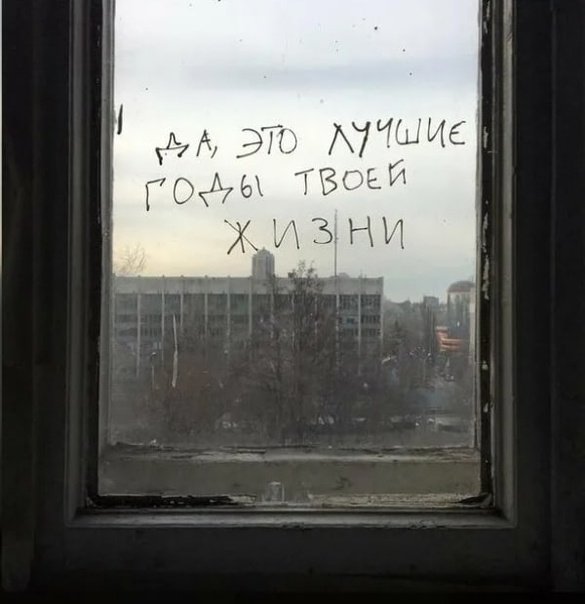 ДА, ЭТО ЛУЧШИЕ
ГОДЫ ТВОЕЙ
ЖИЗНИ